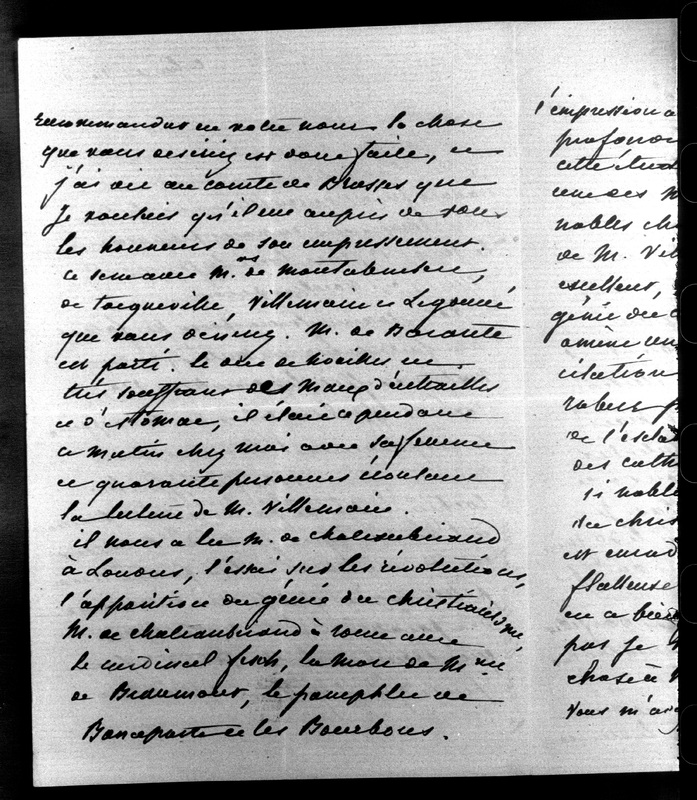 recommander en votre nom. la chose
que vous desiriez est donc faite, et
j'ai dit au comte de Brosses que
je voulais qu'il eut auprès de vous
les honneurs de son empressement.
ce sera avec Mrs de Montalembert,
de tocqueville, Villemain et Legouvé
que vous dinerez. M. de Barante
est parti. le duc de Noailles est
très souffrant des maux d'entrailles
et d'estomac, il était cependant
ce matin chez moi avec sa femme
et quarante personnes écoutant
la lecture de M. Villemain.
il nous a lu M. de chateaubriand
à Londres, l'essai sur les révolutions,
l'apparition du génie du christianisme,
M. de chateaubriand à rome avec
le cardinal fesch, la mort de Mme
de Beaumont, le pamphlet de
Bonaparte et les Bourbons.
l'impression a
profon
cette
une des
nobles
de M. Vil
excellent,
génie du c
amène un
citation
de l'escla
des cath
si noble
du chris
est
flatteuse
en a
pas je
chose à
vous m'a